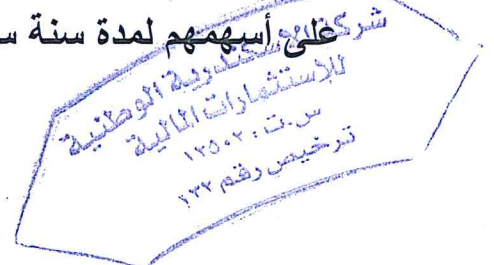 على أسهمهم لمدة سنة
شركة الإسكندرية الوطنية
للإستثمارات المالية
س.ت: ١٢٥٠٢
ترخيص رقم ١٣٢